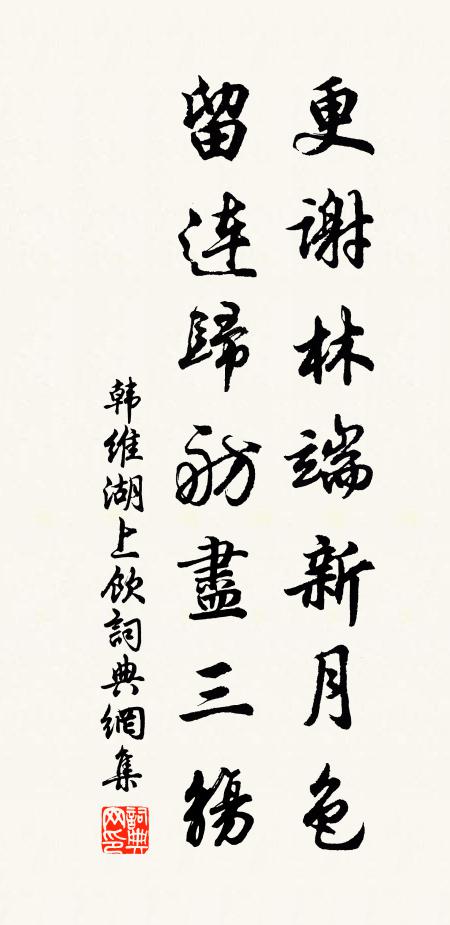 更谢林端新月色
留连歸舫盡三觴
韩维湖上飲詞典網集
詞典網印